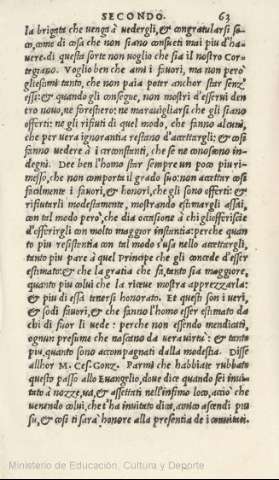 SECONDO. 63
la brigata che venga à vedergli, & congratularsi se
co, come di cosa che non siano consueti mai piu d'ha
uere. di questa sorte non voglio che sia il nostro Cor-
tegiano. Voglio ben che ami i fauori, ma non però
gli estimi tanto, che non paia poter anchor star senz'
essi: & quando gli consegue, non mostri d'esserui den
tro nouo, ne forestiero: ne marauigliarsi che gli siano
offerti: ne gli rifiuti di quel modo, che fanno alcuni,
che per vera ignorantia restano d'accettargli: & cosi
fanno vedere à i circonstanti, che se ne conoscono in-
degni. Dee ben l'homo star sempre un poco piu ri-
messo, che non comporta il grado suo: non accettar cosi
facilmente i fauori, & honori, che gli sono offerti: &
rifiutarli modestamente, mostrando estimargli assai,
con tal modo però, che dia occasione à chi gli offerisce
d'offerirgli con molto maggior instantia: perche quan
to piu resistentia con tal modo s'usa nello accettargli,
tanto piu pare à quel Principe che gli concede d'esser
estimato: & che la gratia che fa, tanto sia maggiore,
quanto piu colui che la riceue mostra apprezzarla:
& piu di essa tenersi honorato. Et questi son i veri,
& sodi fauori, & che fanno l'homo esser estimato da
chi di fuor li vede: perche non essendo mendicati,
ognun presume che nascano da vera virtù: & tanto
piu, quanto sono accompagnati dalla modestia. Disse
allhor M. Ces. Gonz. Parmi che habbiate rubbato
questo passo allo Euangelio, doue dice quando sei inui
tato à nozze, va, & assettati nell'infimo loco, acciò che
venendo colui, che t'ha inuitato dica, amico ascendi piu
su, & cosi ti sarà honore alla presentia de i conuitati.
Ministerio de Educación, Cultura y Deporte